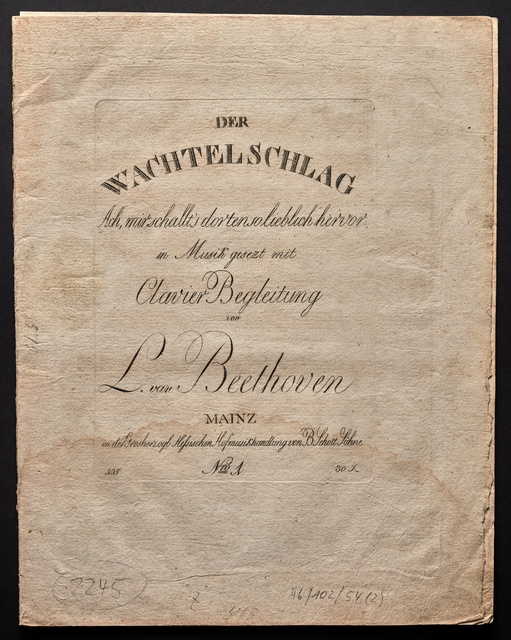 DER
WACHTELSCHLAG
Ach, mir schallt's dorten so lieblich hervor.
in Musik gesezt mit
Clavier Begleitung
von
L. van Beethoven
MAINZ
in der Grosherzogl. Hessischen Hofmusikhandlung von B. Schott Söhne
Nro. 1
2245
46/102/54(2)